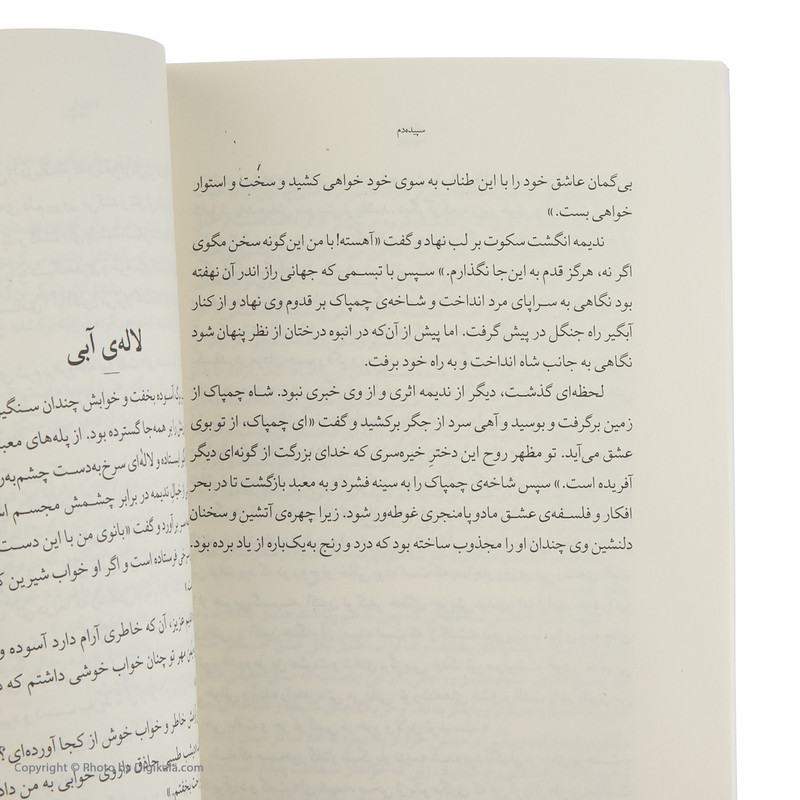 سپیده‌دم
بی‌گمان عاشق خود را با این طناب به سوی خود خواهی کشید و سخت و استوار
خواهی بست.»
ندیمه انگشت سکوت بر لب نهاد و گفت «آهسته! با من این‌گونه سخن مگوی
اگر نه، هرگز قدم به این‌جا نگذارم.» سپس با تبسمی که جهانی راز اندر آن نهفته
بود نگاهی به سراپای مرد انداخت و شاخه‌ی چمپاک بر قدوم وی نهاد و از کنار
آبگیر راه جنگل در پیش گرفت. اما پیش از آن‌که در انبوه درختان از نظر پنهان شود
نگاهی به جانب شاه انداخت و به راه خود برفت.
لحظه‌ای گذشت، دیگر از ندیمه اثری و از وی خبری نبود. شاه چمپاک از
زمین برگرفت و بوسید و آهی سرد از جگر برکشید و گفت «ای چمپاک، از تو بوی
عشق می‌آید. تو مظهر روح این دختر خیره‌سری که خدای بزرگت از گونه‌ای دیگر
آفریده است.» سپس شاخه‌ی چمپاک را به سینه فشرد و به معبد بازگشت تا در بحر
افکار و فلسفه‌ی عشق مادوپامنجری غوطه‌ور شود. زیرا چهره‌ی آتشین و سخنان
دلنشین وی چندان او را مجذوب ساخته بود که درد و رنج به‌یک‌باره از یاد برده بود.
لاله‌ی آبی
آسوده بخفت و خوابش چندان سنگین
را بر همه‌جا گسترده بود. از پله‌های معبد
ایستاده و لاله‌ای سرخ به‌دست چشم‌به‌راه
خیال ندیمه در برابر چشمش مجسم
برآورد و گفت «بانوی من با این دست
فرستاده است و اگر او خواب شیرین
عزیز، آن که خاطری آرام دارد آسوده و
مهر تو چنان خواب خوشی داشتم که
خاطر و خواب خوش از کجا آورده‌ای؟
طبیبی حاذق داروی خوابی به من داد
بخفتم.»
Copyright © Photo by Digikala.com